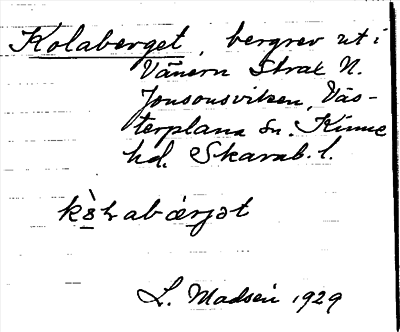 Kolaberget, bergrev ut i
Vänern strax N.
Jonsonsviken, Väs-
terplana sn. Kinne
hd. Skarab. l.
kò̱ɬabæ̱rjət
L. Madsén 1929